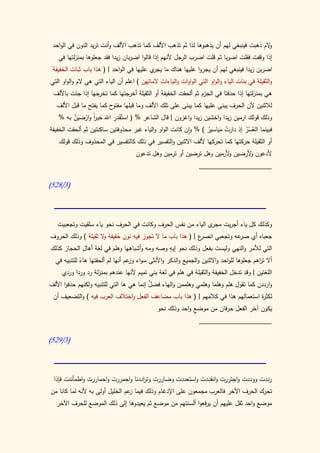 ولام ذهبت فينبغي لهم أن يذهبوها لذا ثم تذهب الألف كما تذهب الألف وأنت تريد النون في الواحد
إذا وقفت فقلت اضربا ثم قلت اضرب الرجل لأنهم إذا قالوا اضربان زيدا فقد جعلوها بمنزلتها في
اضربن زيدا فينبغي لهم أن يجروا عليها هناك ما يجري عليها في الواحد | ( هذا باب ثبات الخفيفة
والثقيلة في بنات الياء والواو التي الواوات والياءات لاماتهن ) اعلم أن الياء التي هي لام والواو التي
هي بمنزلتها إذا حذفتا في الجزم ثم ألحقت الخفيفة أو الثقيلة أخرجتها كما تخرجها إذا جئت بالألف
للاثنين لأن الحرف يبنى عليها كما يبنى على تلك الألف وما قبلها مفتوح كما يفتح ما قبل الألف
وذلك قولك ارمين زيدا واخشين زيدا واغزون | قال الشاعر % ( استقدر الله خيراً وارضين به %
فبينما العسر إذ دارت مياسير ) % وإن كانت الواو والياء غير محذوفتين ساكنتين ثم ألحقت الخفيفة
أو الثقيلة حركتها كما تحركها لألف الاثنين والتفسير في ذلك كالتفسير في المحذوف وذلك قولك
لأدعون ولأرضين ولأرمين وهل ترضين أو ترمين وهل تدعون
(528/3)
وكذلك كل ياء أجريت مجرى الياء من نفس الحرف وكانت في الحرف نحو ياء سلقيت وتجعبيت
جعباه أي صرعه وتجعبي انصرع | ( هذا باب ما لا تجوز فيه نون خفيفة ولا ثقيلة ) وذلك الحروف
التي للأمر والنهي وليست بفعل وذلك نحو إيه وصه ومه وأشباهها وهلم في لغة أهال الحجاز كذلك
ألا تراهم جعلوها للواحد والاثنين والجميع والذكر والأنثى سواء وزعم أنها لم ألحقتها هاء للتنبيه في
اللغتين | وقد تدخل الخفيفة والثقيلة في هلم في لغة بني تميم لأنها عندهم بمنزلة رد وردا وردي
وارددن كما تقول هلم وهلما وهلمي وهلممن والهاء فضل إنما هي ها التي للتنبيه ولكنهم حذفوا الألف
لكثرة استعمالهم هذا في كلامهم | ( هذا باب مضاعف الفعل واختلاف العرب فيه ) والتضعيف أن
يكون آخر الفعل حرفان من موضع واحد وذلك نحو
(529/3)
رددت ووددت واجتررت وانقددت واستعددت وضاررت وتراددنا واحمررت واحماررت واطمأننت فإذا
تحرك الحرف الآخر فالعرب مجمعون على الإدغام وذلك فيما زعم الخليل أولى به لأنه لما كانا من
موضع واحد ثقل عليهم أن يرفعوا ألسنتهم من موضع ثم يعيدوها إلى ذلك الموضع للحرف الآخر